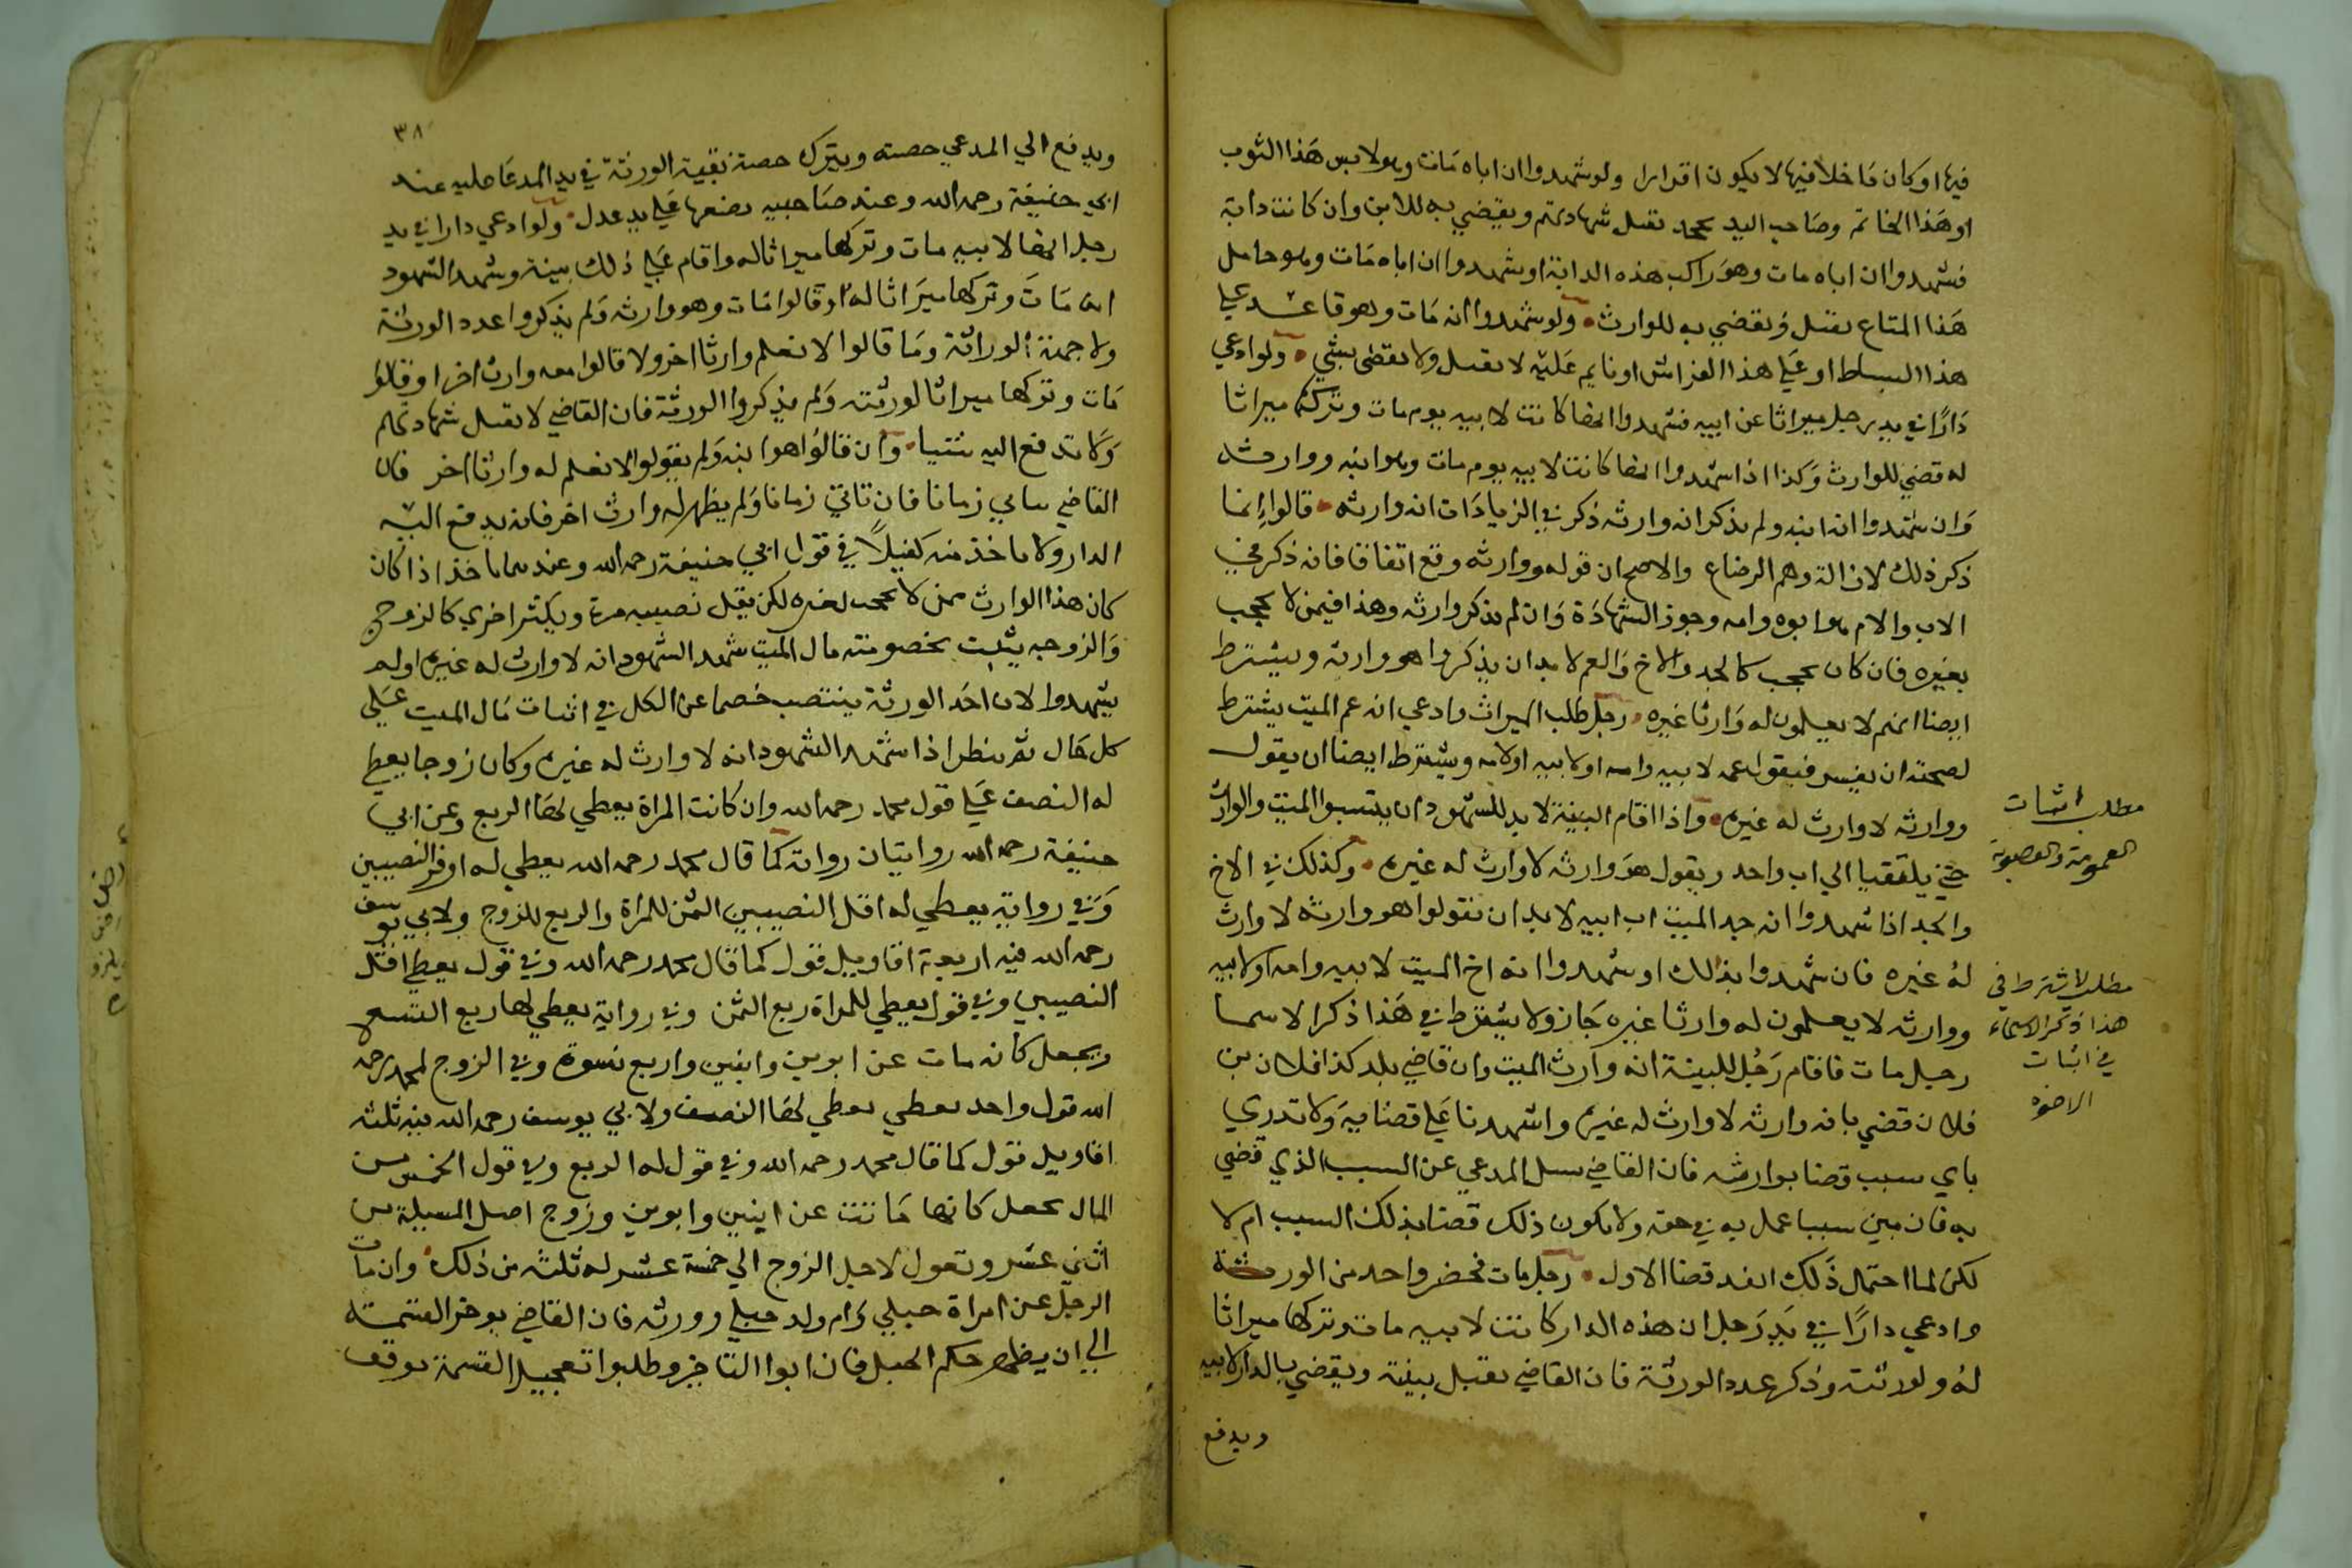 فيها وكان ما خلا فيها لا يكون اقرارا ولو شهدوا ان اباه مات وهو لابس هذا الثوب
او هذا الخاتم وصاحب اليد يجحد تقبل شهادتهم ويقضي به للابن وان كانت دابة
فشهدوا ان اباه مات وهو راكب هذه الدابة او شهدوا ان اباه مات وهو حامل
هذا المتاع يقبل ويقضي به للوارث ولو شهدوا انه مات وهو قاعد علي
هذا البساط او علي هذا الفراش او نايم عليه لا يقبل ولا يقضي بشي ولو ادعي
دارا في يد رجل ميراثا عن ابيه فشهدوا انها كانت لابيه يوم مات وتركها ميراثا
له قضي للوارث وكذا اذا شهدوا انها كانت لابيه يوم مات وهو ابنه ووارثه
وان شهدوا انه ابنه ولم يذكر انه وارثه ذكر في الزيادات انه وارثه قالوا انما
ذكر ذلك لازالة وهم الرضاع والاصح ان قوله ووارثه وقع اتفاقا فانه ذكر في
الاب والام هو ابوه وامه وجوز الشهادة وان لم يذكر وارثه وهذا فيمن لا يحجب
بغيره فان كان يحجب كالجد والاخ والعم لا بد ان يذكروا هو وارثه ويشترط
ايضا انهم لا يعلمون له وارثا غيره رجل طلب الميراث وادعي انه عم الميت يشترط
لصحته ان يفسر فيقول عمه لابيه وامه او لابيه او لامه ويشترط ايضا ان يقول
ووارثه لا وارث له غيره واذا اقام البينة لا بد للشهود ان ينسبوا الميت والوارث
حتي يلتقيا الي اب واحد ويقول هو وارثه لا وارث له غيره وكذلك في الاخ
والجد اذا شهدوا انه جد الميت اب ابيه لا بد ان يقولوا هو وارثه لا وارث
له غيره فان شهدوا بذلك او شهدوا انه اخ الميت لابيه وامه او لابيه
ووارثه لا يعلمون له وارثا غيره جاز ولا يشترط في هذا ذكر الاسما
رجل مات فاقام رجل البينة انه وارث الميت وان قاضي بلد كذا فلان بن
فلان قضي بانه وارثه لا وارث له غيره واشهدنا علي قضايه ولا ندري
باي سبب قضا بوارثه فان القاضي يسل المدعي عن السبب الذي قضي
به فان بين سببا عمل به في حقه ولا يكون ذلك قضا بذلك السبب ام لا
لكن لما احتمل ذلك انفد قضا الاول رجل مات فحضر واحد من الورثة
وادعي دارا في يد رجل ان هذه الدار كانت لابيه مات وتركها ميراثا
له ولورثته وذكر عدد الورثة فان القاضي يقبل بينته ويقضي بالدار لابيه
ويدفع
مطلب اثبات
العمومة والعصوبة
مطلب لا يشترط في
هذا ذكر الاسماء
في اثبات
الاخوه
٣٨
ويدفع الي المدعي حصته ويترك حصة بقية الورثة في يد المدعا عليه عند
ابي حنيفة رحمه الله وعند صاحبيه يضعها علي يد عدل ولو ادعي دارا في يد
رجل انها لابيه مات وتركها ميراثا له واقام علي ذلك بينة وشهد الشهود
انه مات وتركها ميراثا له او قالوا مات وهو وارثه ولم يذكروا عدد الورثة
ولا جهة الوراثة وما قالوا لا نعلم وارثا اخر ولا قالوا معه وارث اخر او قالوا
مات وتركها ميراثا لورثته ولم يذكروا الورثة فان القاضي لا يقبل شهادتهم
ولا تدفع اليه شيا وان قالوا هو ابنه ولم يقولوا لا نعلم له وارثا اخر فان
القاضي يتاني زمانا فان تاني زمانا ولم يظهر له وارث اخر فانه يدفع اليه
الدار ولا ياخذ منه كفيلا في قول ابي حنيفة رحمه الله وعندهما ياخذ اذا كان
كان هذا الوارث ممن لا يحجب لغيره لكن يقل نصيبه مرة ويكثر اخري كالزوج
والزوجه يثبت بخصومته مال الميت شهد الشهود انه لا وارث له غيره او لم
يشهدوا لان احد الورثة ينتصب خصما عن الكل في اثبات مال الميت علي
كل حال ثم ينظر اذا شهد الشهود انه لا وارث له غيره وكان زوجا يعطي
له النصف علي قول محمد رحمه الله وان كانت المراة يعطي لها الربع وعن ابي
حنيفة رحمه الله روايتان رواية كما قال محمد رحمه الله يعطي له اوفر النصيبين
وفي رواية يعطي له اقل النصيبين الثمن للمراة والربع للزوج ولابي يوسف
رحمه الله فيه اربعة اقاويل قول كما قال محمد رحمه الله وفي قول يعطي اقل
النصيبين وفي قول يعطي للمراة ربع الثمن وفي رواية يعطي لها ربع التسع
ويجعل كانه مات عن ابوين وابنين واربع نسوة وفي الزوج لمحمد رحمه
الله قول واحد يعطي يعطي لها النصف ولابي يوسف رحمه الله فيه ثلثه
اقاويل قول كما قال محمد رحمه الله وفي قول له الربع وفي قول الخمس من
المال يجعل كانها ماتت عن ابنين وابوين وزوج اصل المسيلة من
اثني عشر وتعول لاجل الزوج الي خمسة عشر له ثلثه من ذلك وان مات
الرجل عن امراة حبلي وام ولد حبلي وورثه فان القاضي يوخر القسمة
الي ان يظهر حكم الحبل فان ابوا التاخير وطلبوا تعجيل القسمة يوقف